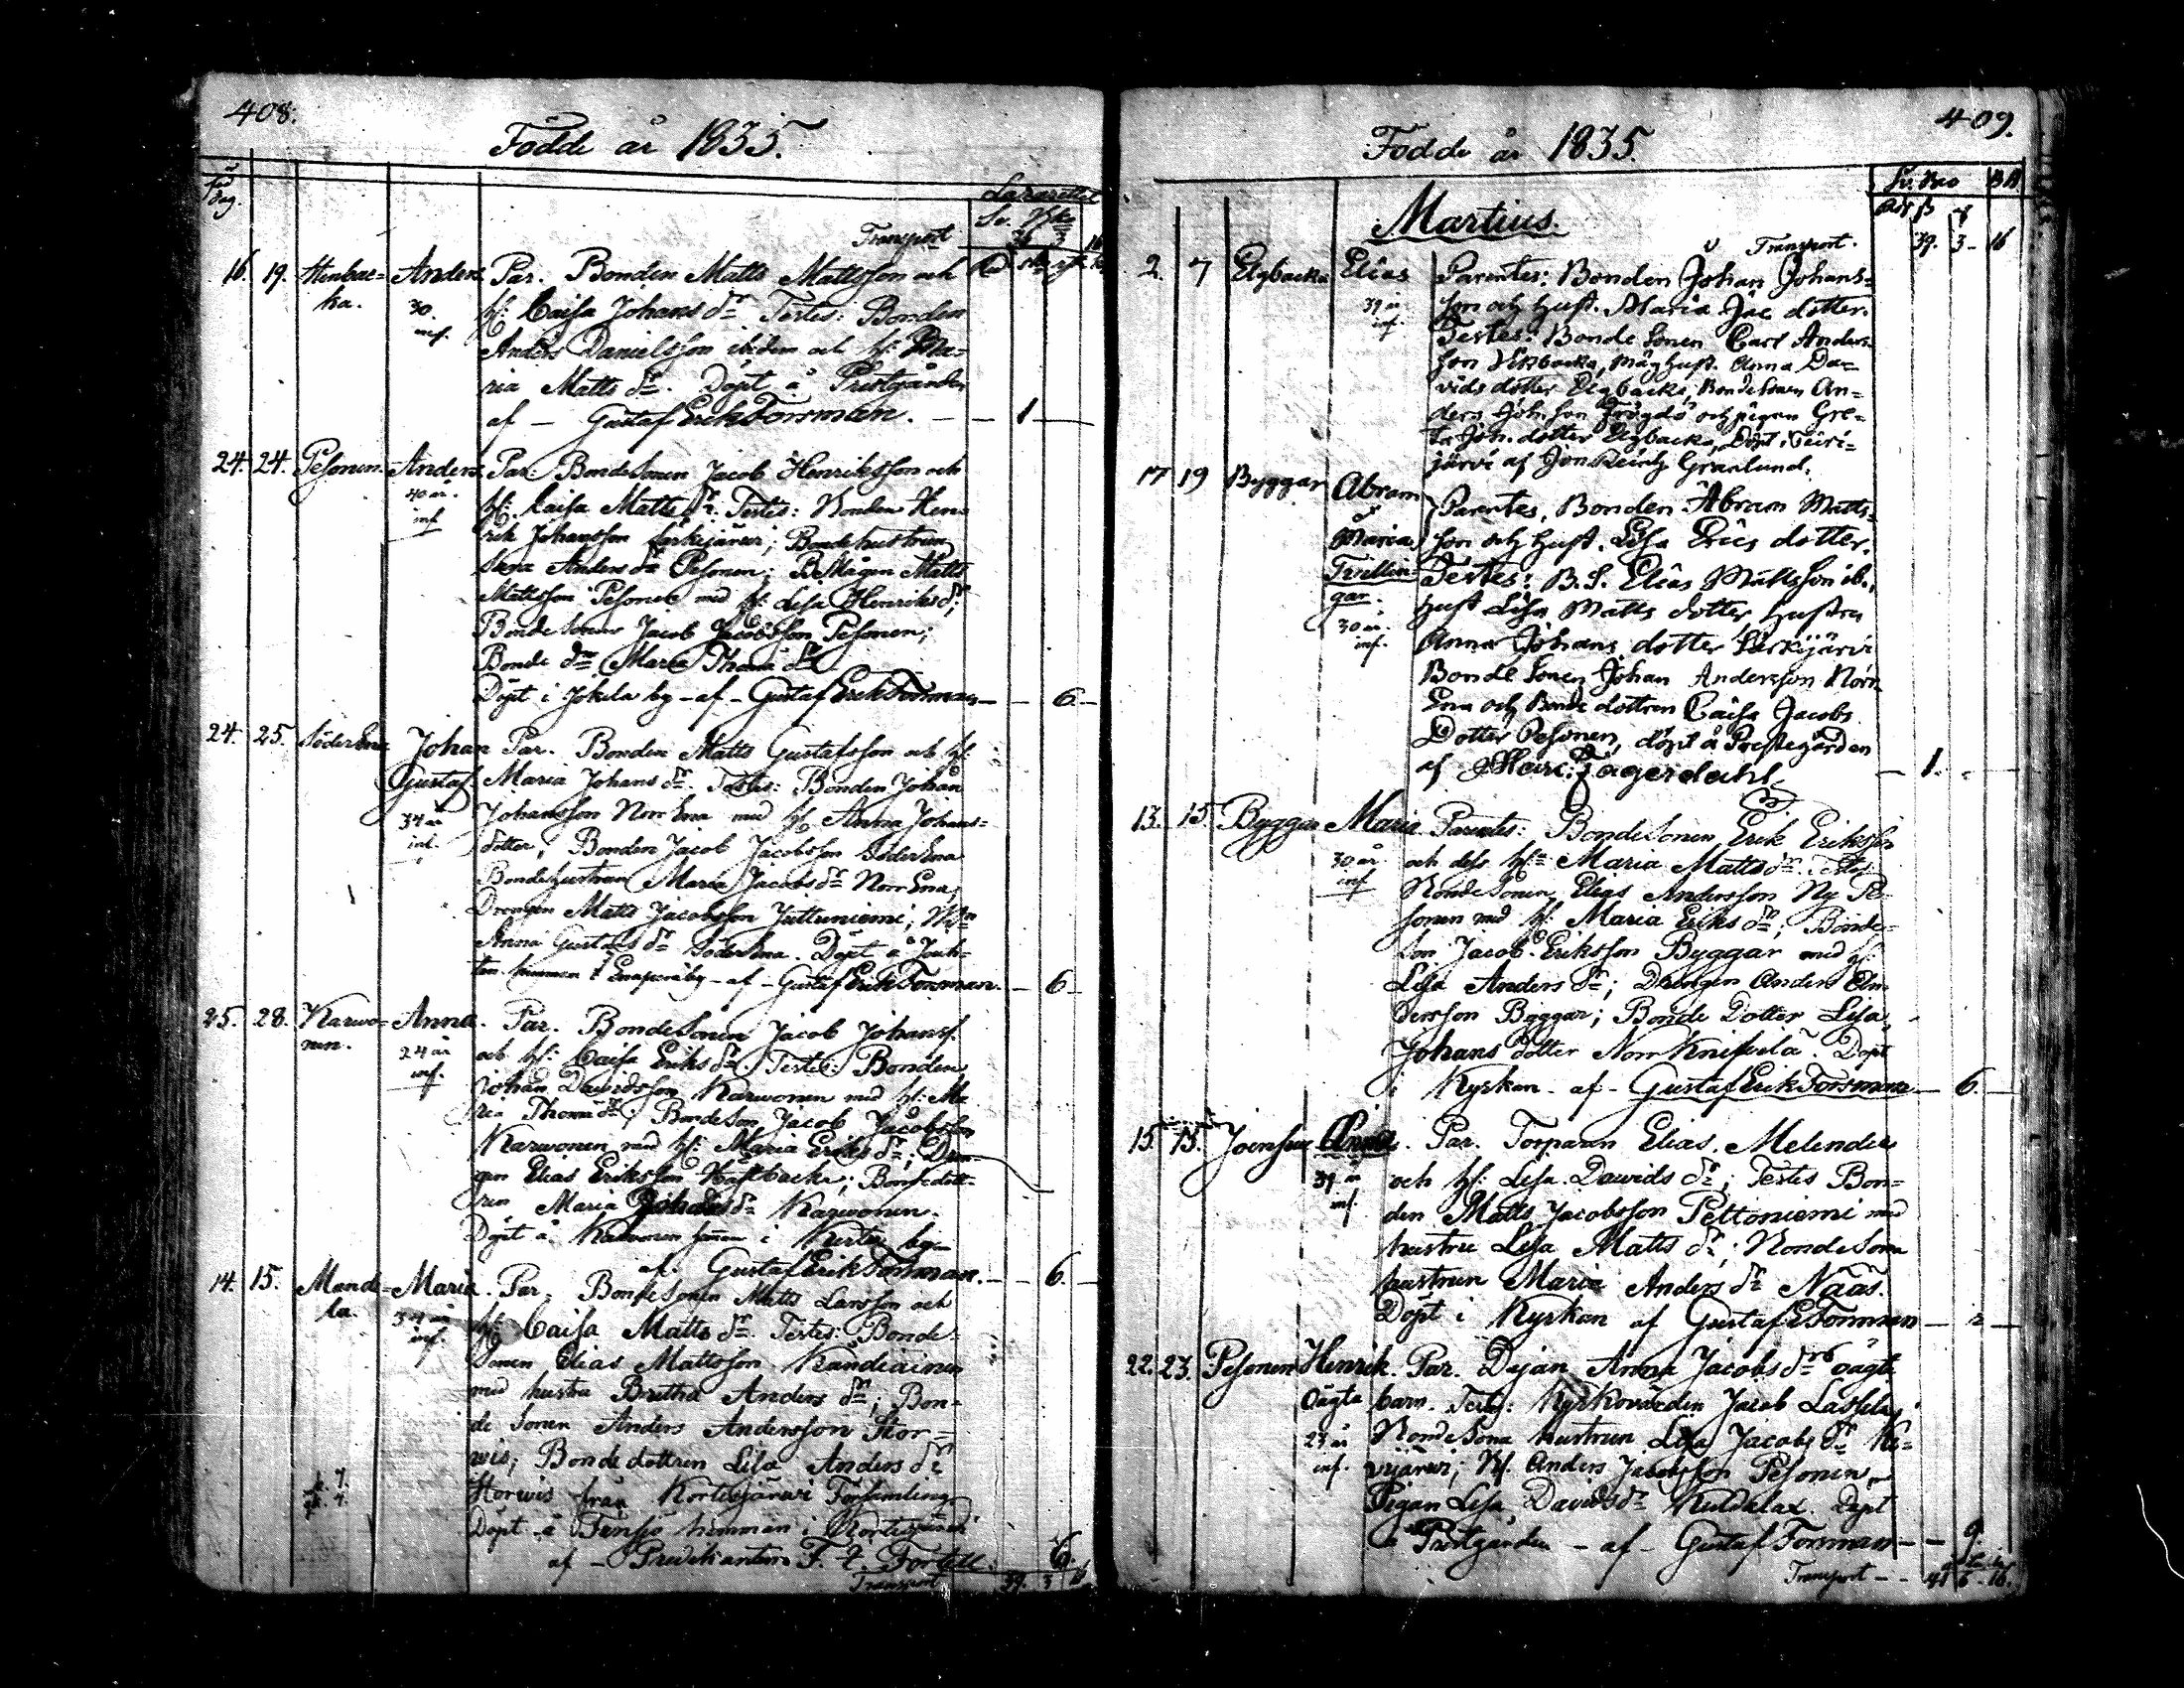 408.
Födde år 1835.
Lazarettet
Transport
16. 19. Stenbac- Anders. Par. Bonden Matts Mattsson och
ka. 30. hu: Caisa Johans dr. Testes: Bonden
inf. Anders Danielsson ibidem och hu: Ma-
ria Matts dr. Döpt å Prostgården
af - Gustaf Erik Forsman. - - 1 -
24. 24. Pesonen. Anders. Par: Bondesonen Jacob Henriksson och
40 år. hu: Caisa Matts dr. Testes: Bonden Hen-
inf. rik Johansson Särkijärwi; Bondehustrun
Anders dr Pesonen; B. Mågen Matts
Mattsson Pesonen med hu: Lisa Henriks dr;
Bonde Sonen Jacob Jacobsson Pesonen;
Bonde dr Maria Thomæ dr
Döpt i Jokela by - af - Gustaf Erik Forsman - - 6 -
24. 25. Söder Ena Johan Par. Bonden Matts Gustafsson och hu:
Gustaf Maria Johans dr. Testes: Bonden Johan
34 år Johansson Norr Ena med hu: Anna Johans-
inf. dotter; Bonden Jacob Jacobsson Söder Ena
Bondehustrun Maria Jacobs dr Norr Ena;
Drengen Matts Jacobsson Juttuniemi;
Anna Gustafs dr Söder Ena. Döpt å
hemman i by - af - Gustaf Erik Forsman. - 6 -
25. 28. Karwo- Anna. Par. Bondesonen Jacob Johanss.
nen. 24 år och hu: Caisa Eriks dr. Testes: Bonden
inf. Johan Dawidsson Karwonen med hu: Ma-
ria Thomæ dr; Bondeson Jacob Jacobsson
Karwonen med hu: Maria Eriks dr; Dren-
gen Elias Eriksson; Bondedott-
ren Maria dr Karwonen.
Döpt å Karwonen hemman i by
af. Gustaf Erik Forsman. - - 6. -
14. 15. Mande- Maria. Par. Bondesonen Matts Larsson och
la. 34 år hu: Caisa Matts dr. Testes: Bonde-
inf. Sonen Elias Mattsson Kandiainen
med hustru Bretha Anders dr; Bon-
de sonen Anders Andersson Stor-
wis; Bondedottren Lisa Anders dr
Storwis från Kortesjärwi Församling
Döpt å hemman i Kortesjärwi
af - Predikanten F. F. Forsell. 6.
Transport 39. 3 16
409.
Födde år 1835.
Martius.
Transport. 39. 3 - 16
2. 7 Elgbacka Elias Parentes: Bonden Johan Johans-
39 år son och Hust. Maria Jac dotter.
inf. Testes: Bonde Sonen Carl Anders-
son, Måg Hust. Anna Da-
vids dotter Elgbacka, Bonde Sonen An-
ders Johnson och pigan Gre-
ta Joh. dotter Elgbacka, Döpt i
järvi af Jon Granlund.
17 19 Byggar Abram Parentes, Bonden Abram Matts-
Maria, son och Hust. Lisa Erics dotter.
Tvillin- Testes: B.S. Elias Mattsson ib.,
gar. Hust Lisa Matts dotter, Hustru
30 år. Anna Johans dotter Särkijärvi
inf. Bonde Sonen Johan Andersson Norr
Ena och Bonde dottren Caisa Jacobs
Dotter Pesonen, döpt å Prostegården
af - 1. -
13. 15 Byggar Maria Parentes: Bondesonen Erik Eriksson
30 år och dess hu: Maria Matts dr. Testes
inf Bondesonen Elias Andersson Ny Pe-
sonen med hu: Maria Eriks dr; Bonde-
son Jacob Eriksson Byggar med hu:
Lisa Anders dr; Drengen Anders An-
dersson Byggar; Bonde Dotter Lisa
Johans dotter Norr Knifsilä. Döpt
i Kyrkan - af - Gustaf Erik Forsman - 6. -
15. 15. Joensuu Anna. Par. Torparn Elias Melender
39 år och hu: Lisa Dawids dr; Testes Bon-
inf. den Matts Jacobsson Peltoniemi med
hustru Lisa Matts dr; Bondesona
hustrun Maria Anders dr Nääs.
Döpt i Kyrkan af Gustaf E Forsman - 2 -
22. 23. Pesonen Henrik. Par. Dejan Anna Jacobs dr oägta
Oägta barn. Testes: Kyrkovärden Jacob Lassila;
23 år Bonde Sona hustrun Lisa Jacobs dr Ki-
inf. vijärwi; Anders Jacobsson Pesonen
Pigan Lisa Davids dr Kuddelax. Döpt
å Prostgården - af - Gustaf Forsman - - 9.
Transport - - 41 6 - 16.